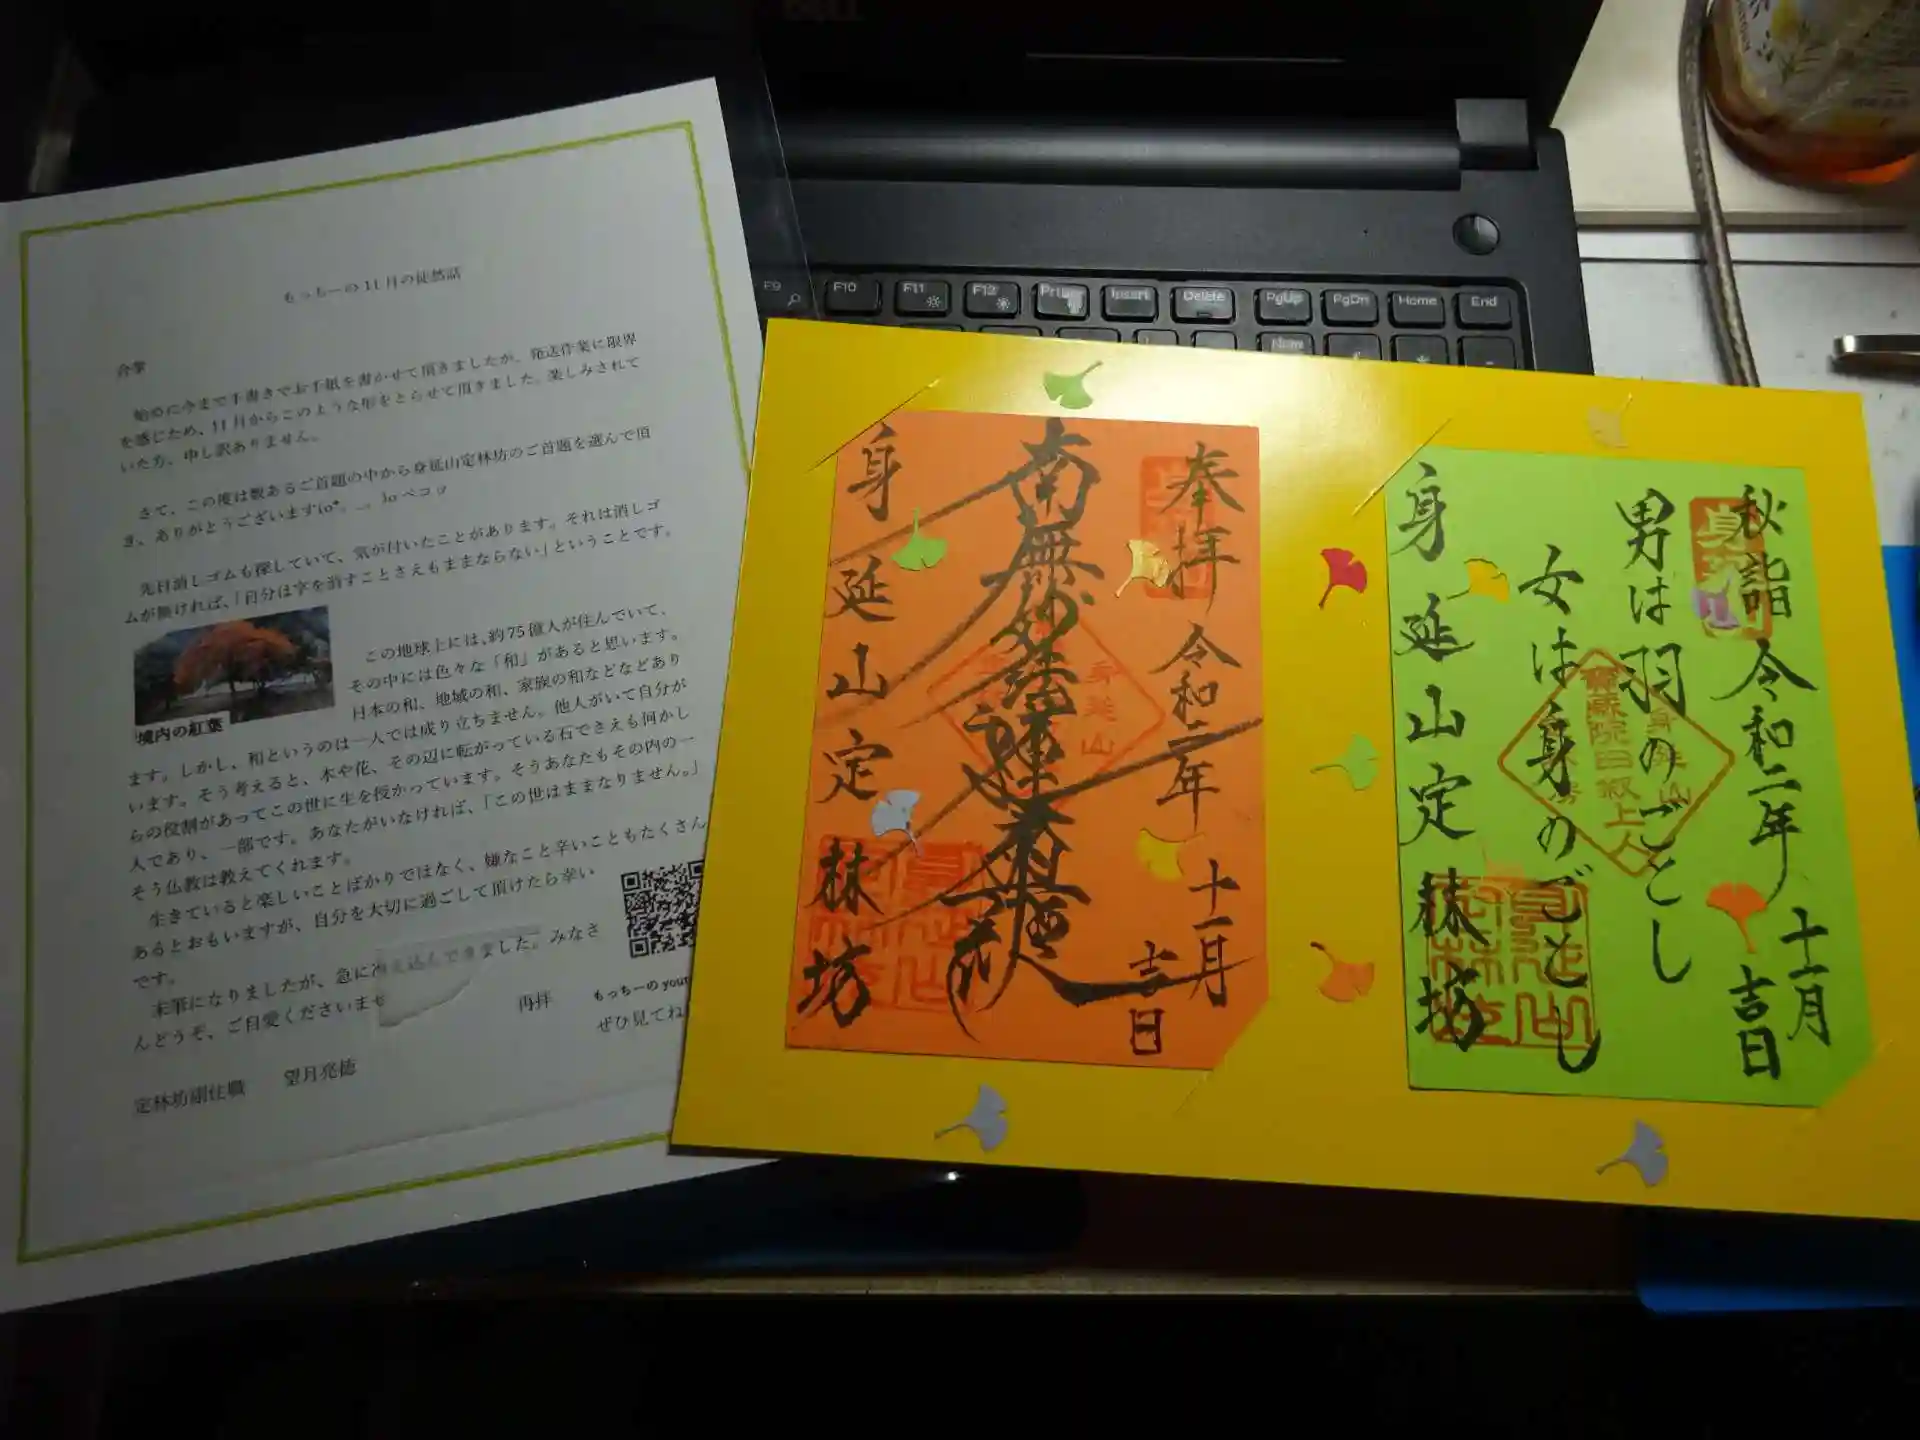 もっちーの11月の徒然話
合掌
始めに今まで手書きでお手紙を書かせて頂きましたが、発送作業に限界
を感じため、11月からこのような形をとらせて頂きました。楽しみされて
いた方、申し訳ありません。
さて、この度は数あるご首題の中から身延山定林坊のご首題を選んで頂
き、ありがとうございます
先日消しゴムも探していて、気が付いたことがあります。それは消しゴ
ムが無ければ、「自分は字を消すことさえもままならない」ということです。
この地球上には、約75億人が住んでいて、
その中には色々な「和」があると思います。
日本の和、地域の和、家族の和などなどあり
ます。しかし、和というのは一人では成り立ちません。他人がいて自分が
います。そう考えると、木や花、その辺に転がっている石でさえも何かし
らの役割があってこの世に生を授かっています。そうあなたもその内の一
人であり、一部です。あなたがいなければ、「この世はままなりません。」
そう仏教は教えてくれます。
境内の紅葉
生きていると楽しいことばかりではなく、嫌なこと辛いこともたくさん
あるとおもいますが、自分を大切に過ごして頂けたら幸い
です。
末筆になりましたが、急に冷え込んできました。みなさ
んどうぞ、ご自愛くださいませ
再拝
もっちーの your
ぜひ見てね
定林坊副住職 望月亮徳
F9
F10
F11
F12
Insert
Delete
PgUp
PgDn
Home
End
奉拝 令和二年 十一月
吉日
南無妙法蓮華経
身延山定林坊
身延山
秋詣 令和二年 十一月
吉日
男は羽のごとし
女は身のごとし
身延山定林坊